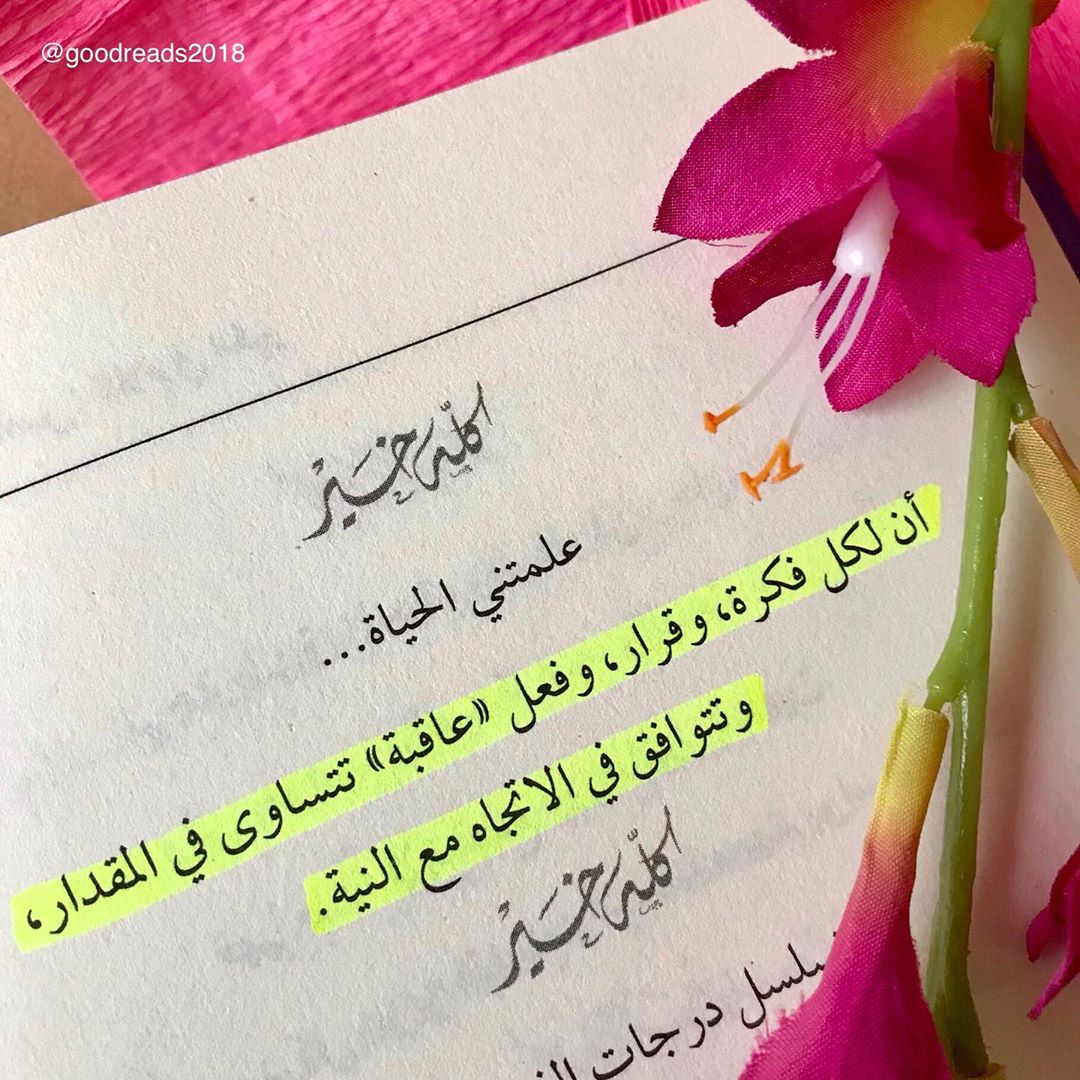 @goodreads2018
كله خير
علمتني الحياة...
أن لكل فكرة، وقرار، وفعل «عاقبة» تتساوى في المقدار،
وتتوافق في الاتجاه مع النية.
كله خير
درجات